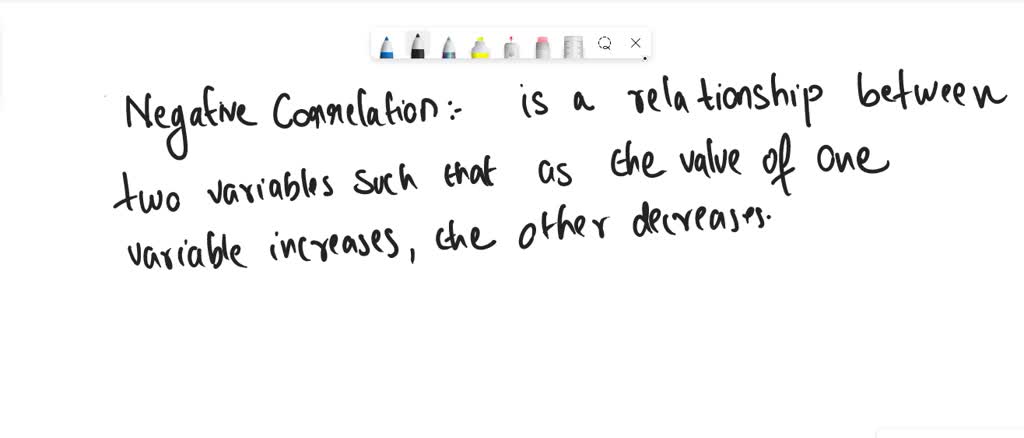 Negative Correlation:- is a relationship between
two variables such that as the value of one
variable increases, the other decreases.